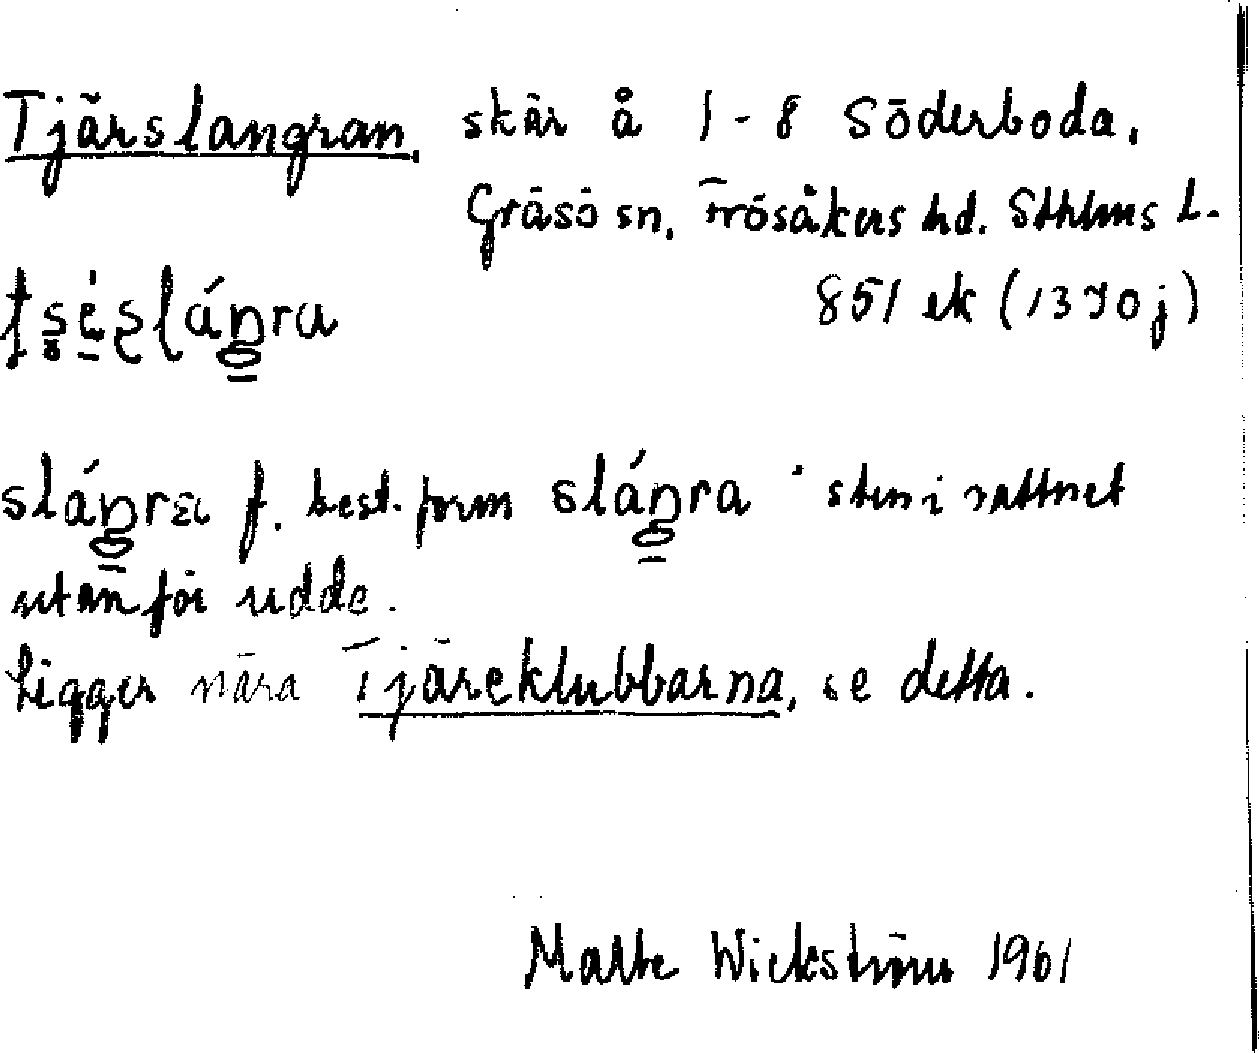 Tjärslangran, skär å 1-8 Söderboda,
Gräsö sn, Frösåkers hd. Sthlms L.
851 ek (13 I 0 j)
sláŋra f. best. form sláŋra sten i vattnet
utanför udde.
Ligger nära Tjäreklubbarna, se detta.
Malte Wickström 1961